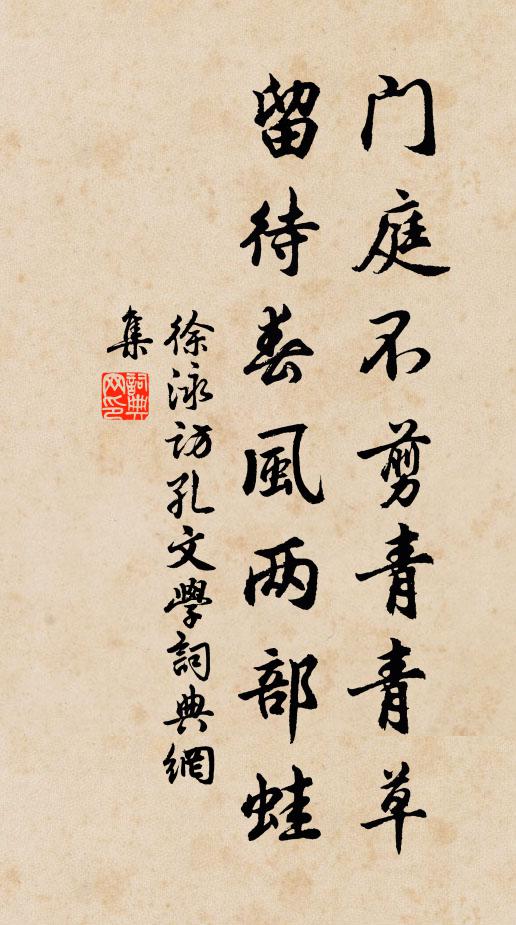 门庭不剪青青草
留待春風两部蛙
徐泳访孔文學詞典網
集
詞典
网印